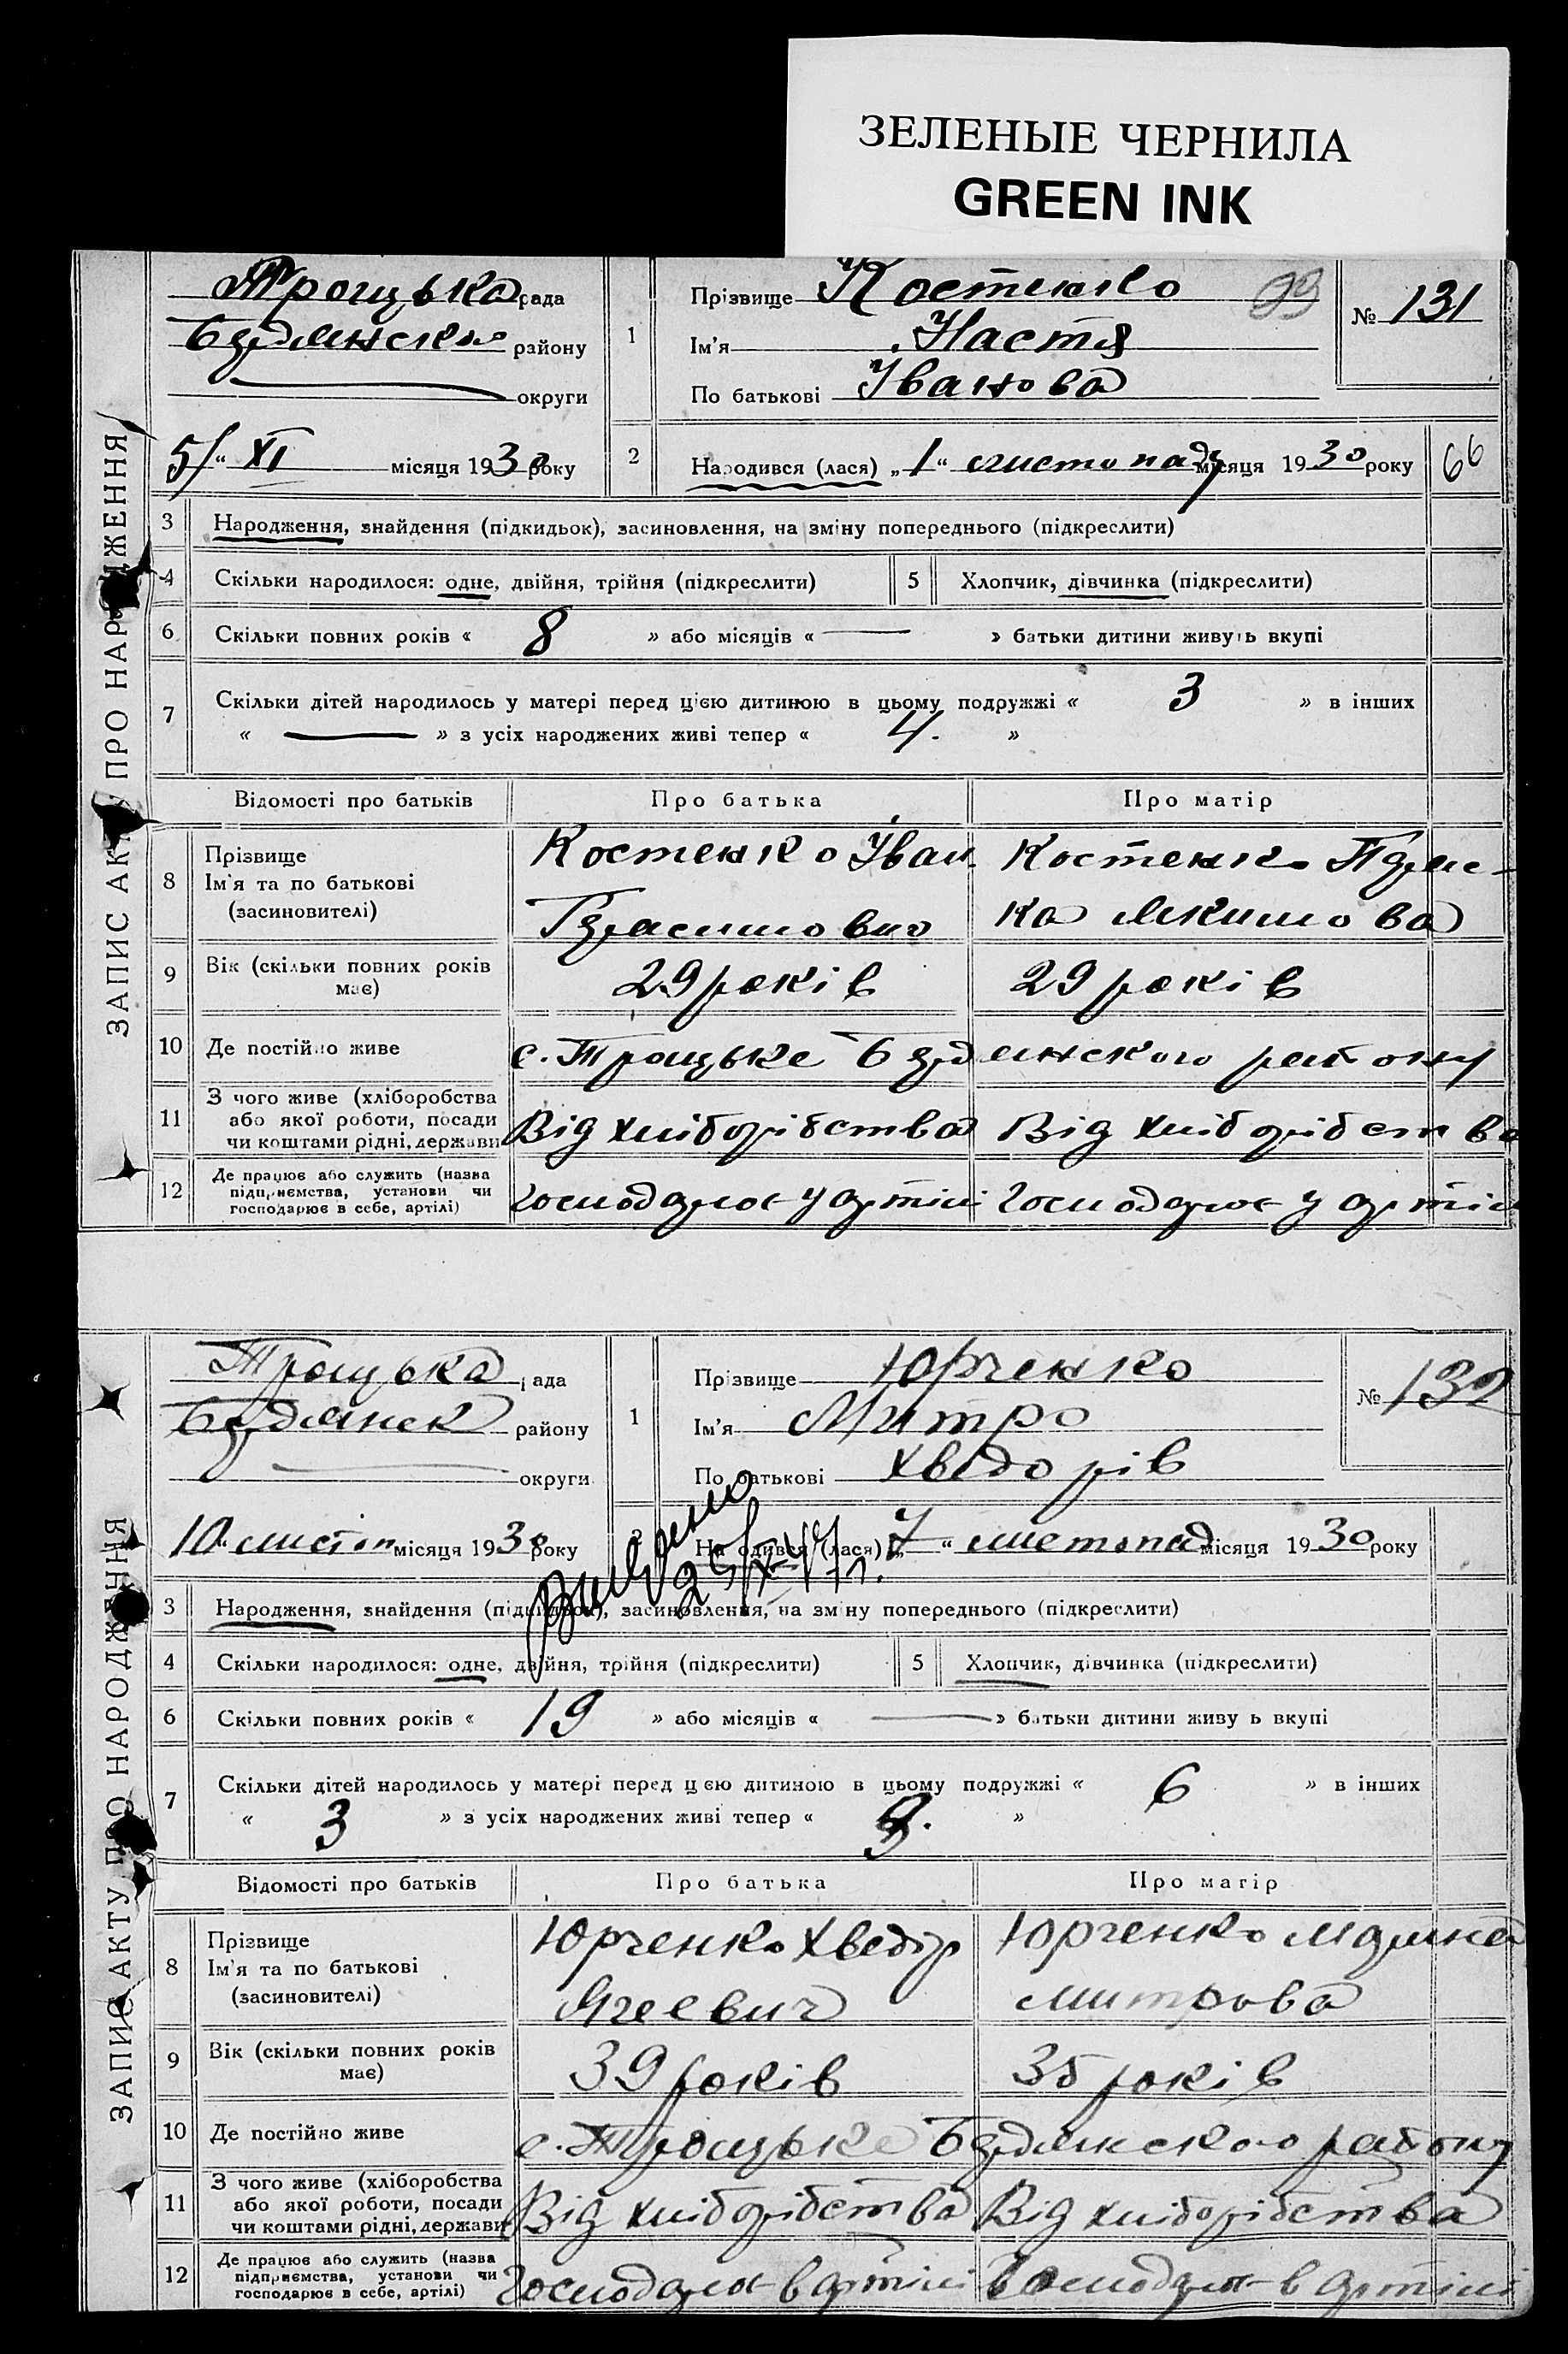 ЗЕЛЕНЫЕ ЧЕРНИЛА
GREEN INK
ЗАПИС АКТУ ПРО НАРОДЖЕННЯ
Троцька рада
району
округи
1
Прізвище Костенко
Ім'я Настя
По батькові Іванова
№ 131
5/" XI місяця 1930 року
2
Народився (лася) „1" листопаду місяця 1930 року
66
3 Народження, знайдення (підкидьок), засиновлення, на зміну попереднього (підкреслити)
4 Скільки народилося: одне, двійня, трійня (підкреслити) 5 Хлопчик, дівчинка (підкреслити)
6 Скільки повних років « 8 » або місяців « — » батьки дитини живуть вкупі
7 Скільки дітей народилось у матері перед цією дитиною в цьому подружжі « 3 » в інших
« — » з усіх народжених живі тепер « 4. »
Відомості про батьків Про батька Про матір
8 Прізвище
Ім'я та по батькові
(засиновителі)
Костенко Іван
Герасимович
Костенко
Якимова
9 Вік (скільки повних років
має)
29 років 29 років
10 Де постійно живе с. Троцьке Бердянского району
11 З чого живе (хліборобства
або якої роботи, посади
чи коштами рідні, держави
Від хліборібства Від хліборібства
12 Де працює або служить (назва
підприємства, установи чи
господарює в себе, артілі)
Господарює у артілі Господарює у артілі
ЗАПИС АКТУ ПРО НАРОДЖЕННЯ
Троцька рада
Бердянск району
округи
1
Прізвище Юрченко
Ім'я Митро
По батькові Хведорів
№ 132
10" листоп місяця 1930 року
Народився (лася) „7" листопад місяця 1930 року
3 Народження, знайдення (підкидьок), засиновлення, на зміну попереднього (підкреслити)
4 Скільки народилося: одне, двійня, трійня (підкреслити) 5 Хлопчик, дівчинка (підкреслити)
6 Скільки повних років « 19 » або місяців « — » батьки дитини живуть вкупі
7 Скільки дітей народилось у матері перед цією дитиною в цьому подружжі « 6 » в інших
« 3 » з усіх народжених живі тепер « »
Відомості про батьків Про батька Про матір
8 Прізвище
Ім'я та по батькові
(засиновителі)
Юрченко Хведір
Юрченко
Митрова
9 Вік (скільки повних років
має)
39 років 35 років
10 Де постійно живе с. Троцьке Бердянского району
11 З чого живе (хліборобства
або якої роботи, посади
чи коштами рідні, держави
Від хліборібства Від хліборібства
12 Де працює або служить (назва
підприємства, установи чи
господарює в себе, артілі)
Господарює в артілі Господарює в артілі